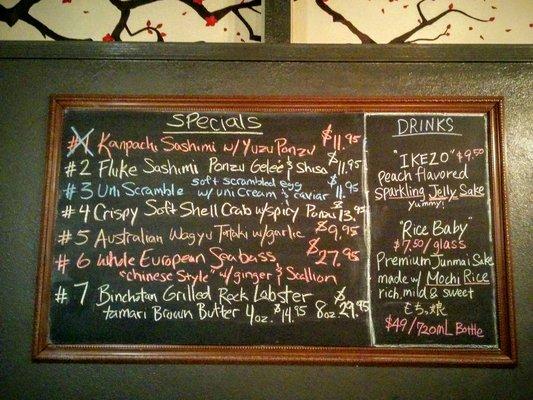 Specials
#1 Kanpachi Sashimi w/ Yuzu Ponzu $11.95
#2 Fluke Sashimi Ponzu Geleé & Shiso $11.95
#3 Uni Scramble soft scrambled egg w/ uni cream & caviar $11.95
#4 Crispy Soft Shell Crab w/ spicy Ponzu $13.95
#5 Australian Wagyu Tataki w/ garlic $9.95
#6 Whole European Seabass $27.95
"chinese Style" w/ ginger & Scallion
#7 Binchotan Grilled Rock Lobster
tamari Brown Butter 4oz. $14.95 8oz. $29.95
DRINKS
"IKEZO" $9.50
Peach flavored
Sparkling Jelly Sake
Yummy!
"Rice Baby"
$7.50/glass
Premium Junmai Sake
made w/ Mochi Rice
rich, mild & sweet
もち娘
$49/720mL Bottle